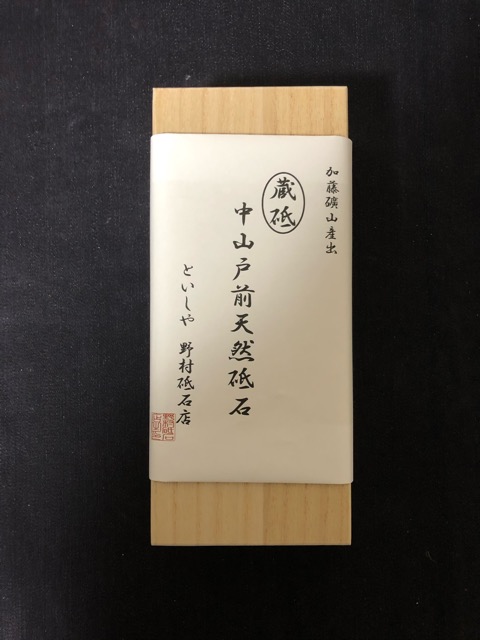 加藤礦山産出
蔵砥
中山戸前天然砥石
といしや 野村砥石店